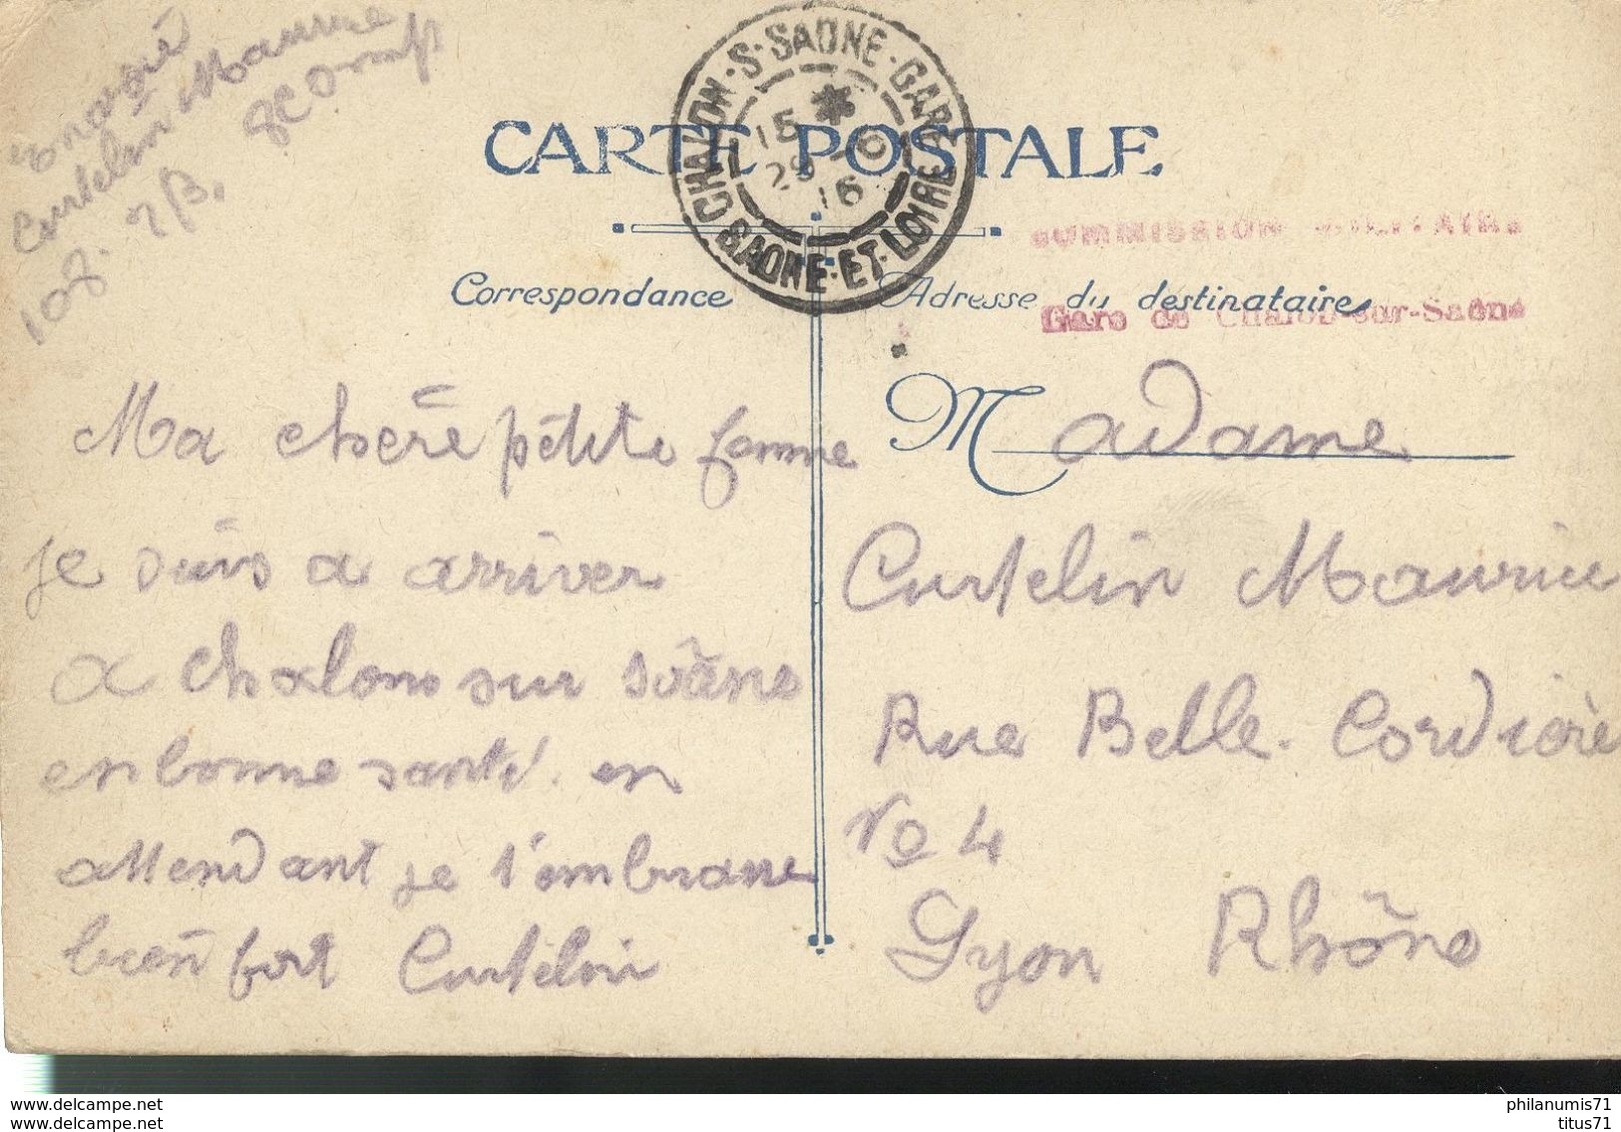 Curtelin Maurice
108. 7 B.
CARTE POSTALE
CHALON-S-SAONE-GARE
15 * 6
29 16
SAONE-ET-LOIRE
COMMISSION MILITAIRE
Gare de Chalon-sur-Saône
Correspondance
Adresse du destinataire
Ma chère pétite femme
je suis a arriver
a chalons sur Soâne
en bonne santé. en
attendant je t'embrasse
bien fort Curtelin
Madame
Curtelin Maurice
Rue Belle. Cordière
No 4
Lyon Rhône
delcampe.net
delcampe.net
philanumis71
titus71